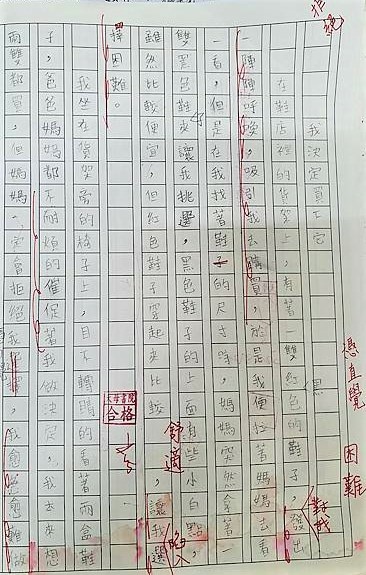 我決定買下它
在鞋店裡的貨架上,有著一雙紅色的鞋子,發出
一陣陣呼喚,吸引我去購買,於是我便拉著媽媽去看
一看,但是在我找著鞋子的尺寸時,媽媽突然拿著一
雙黑色鞋來讓我挑選,黑色鞋子的上面有些小白點,
雖然比較便宜,但紅色鞋子穿起來比較舒適,讓我選
擇困難。
我坐在貨架旁的椅子上,目不轉睛的看著兩盒鞋
子,媽媽都不耐煩的催促著我做決定,我去來想
兩雙都買,但媽媽一定會拒絕我,我愈想愈難做
拒絕
對我
陷入
憑直覺
困難
合格